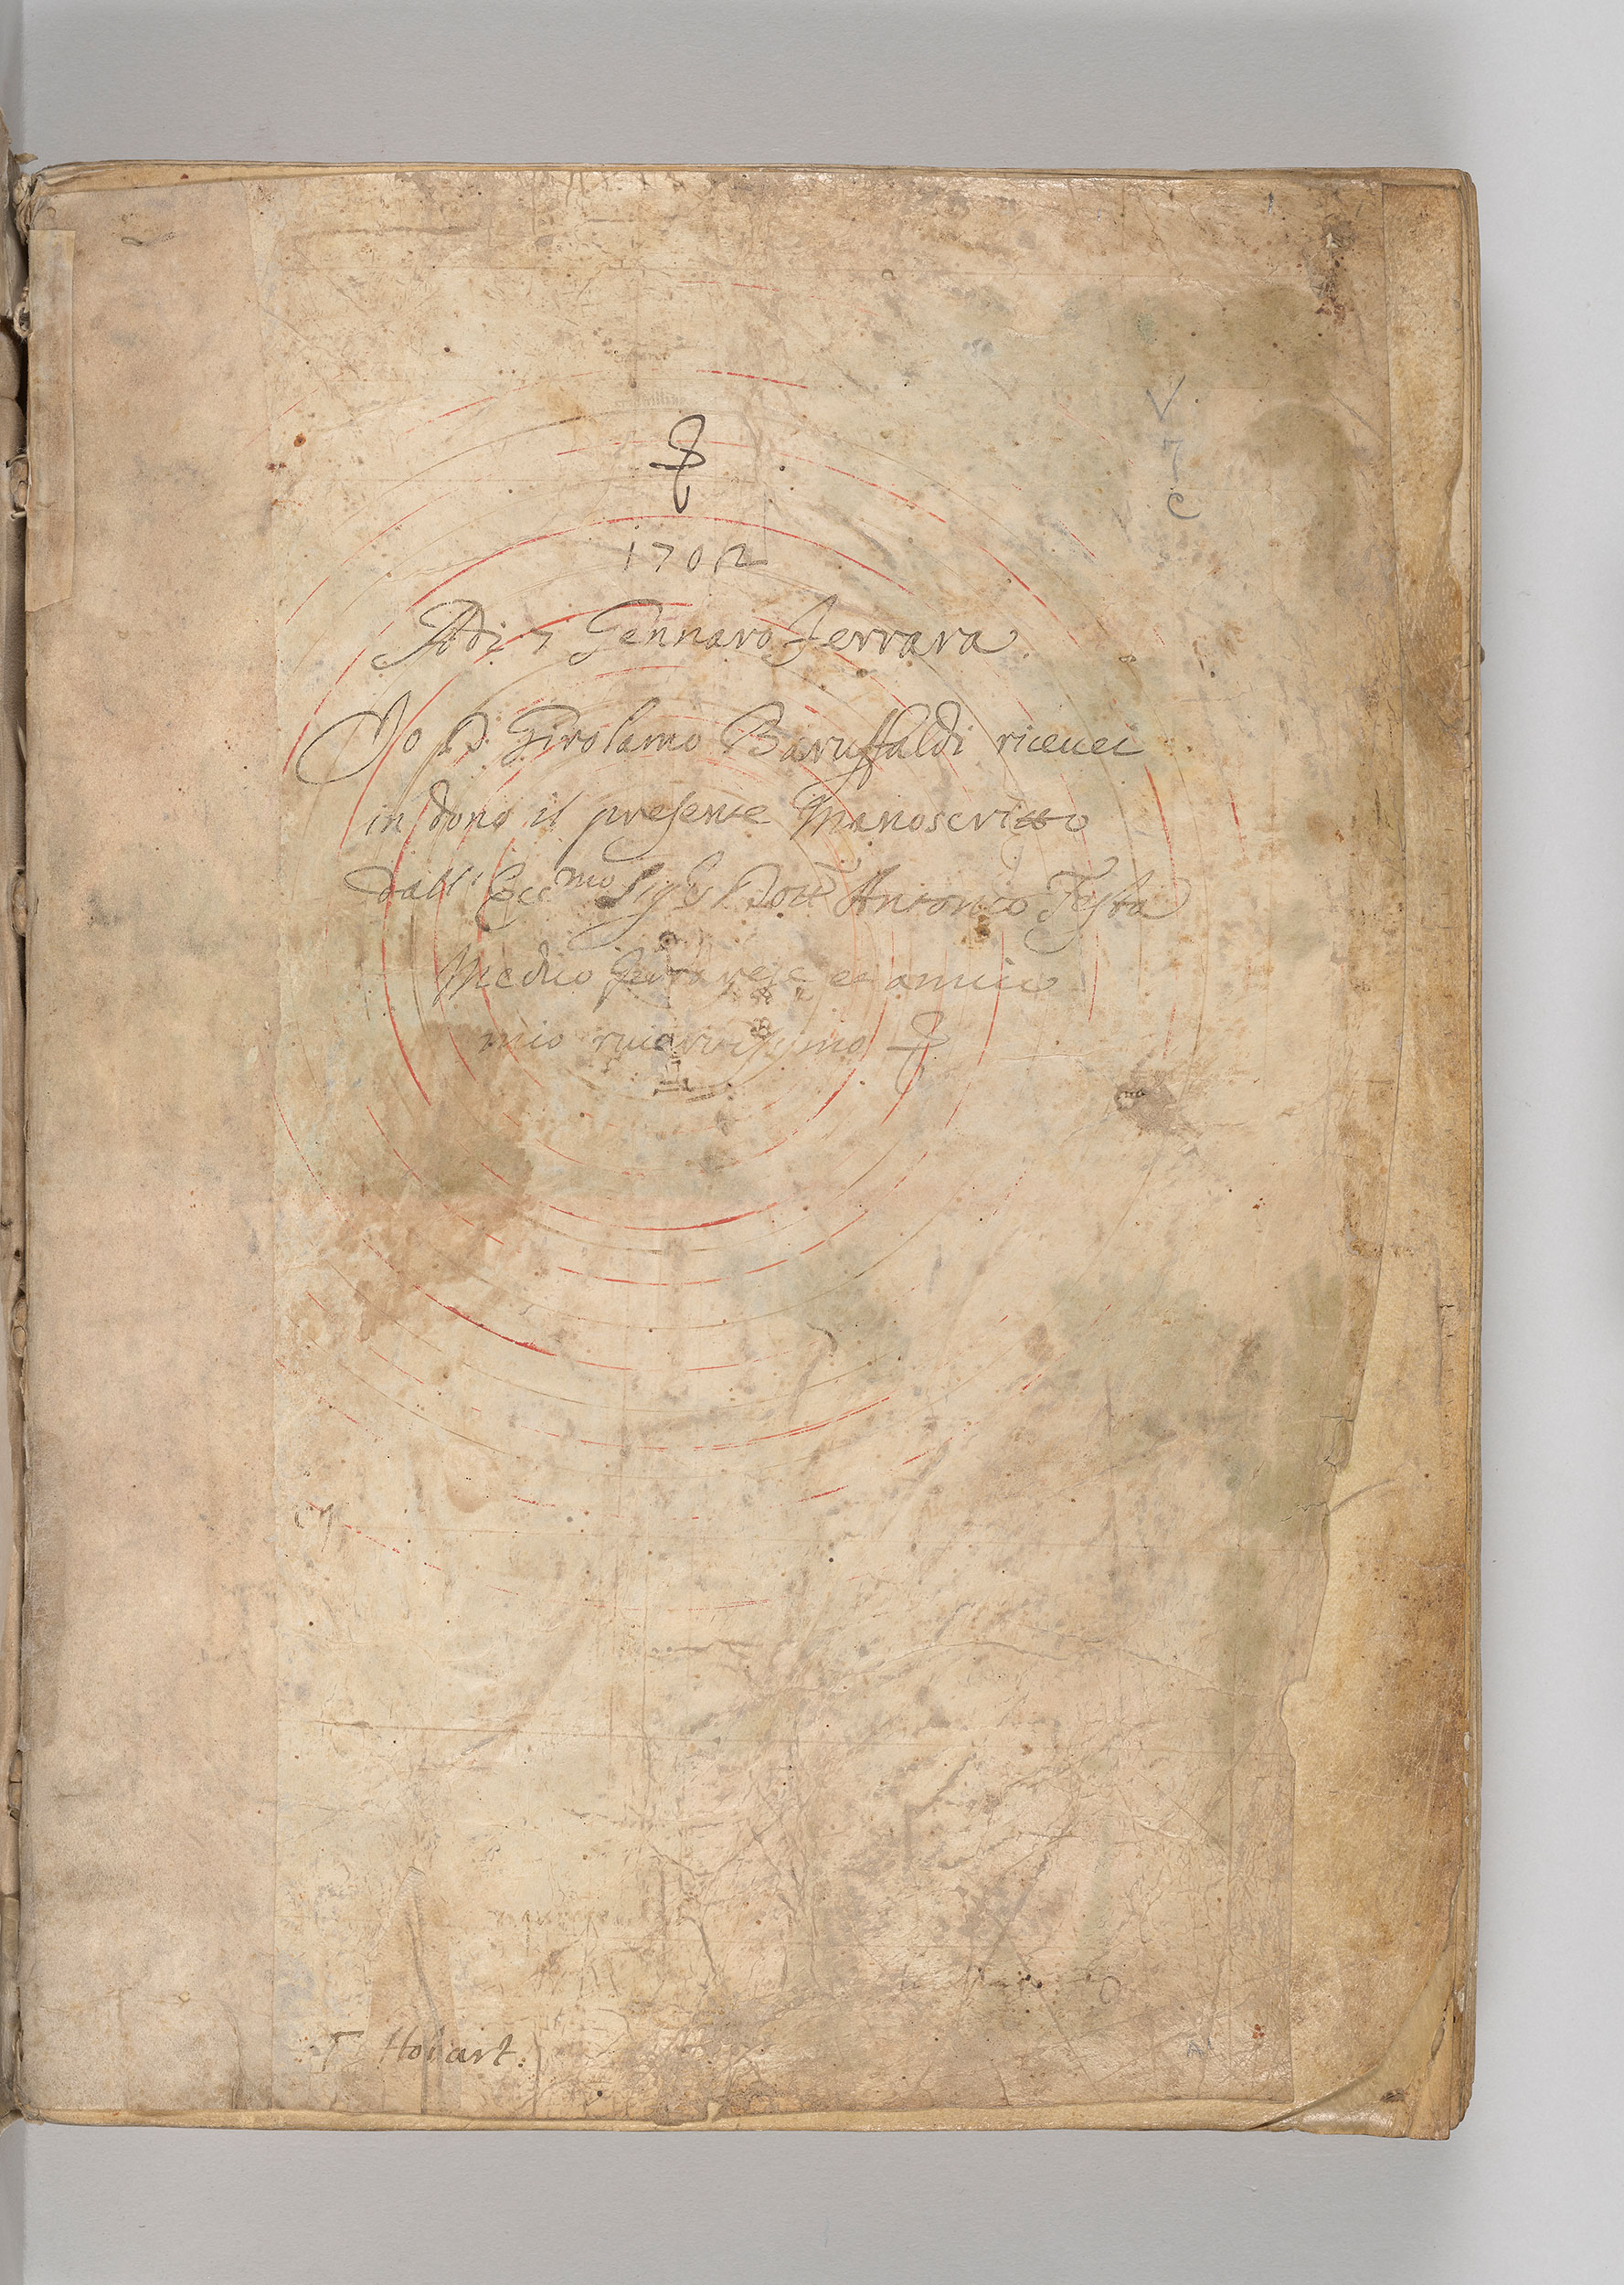 V
7
C
1702
Adi 7 Gennaro Ferrara
Io D. Girolamo Baruffaldi riceuei
in dono il presente Manoscritto
dall' Ecc.mo Sig.r Dott.r Antonio Testa
Medico Ferrarese et amico
mio
T Hobart.